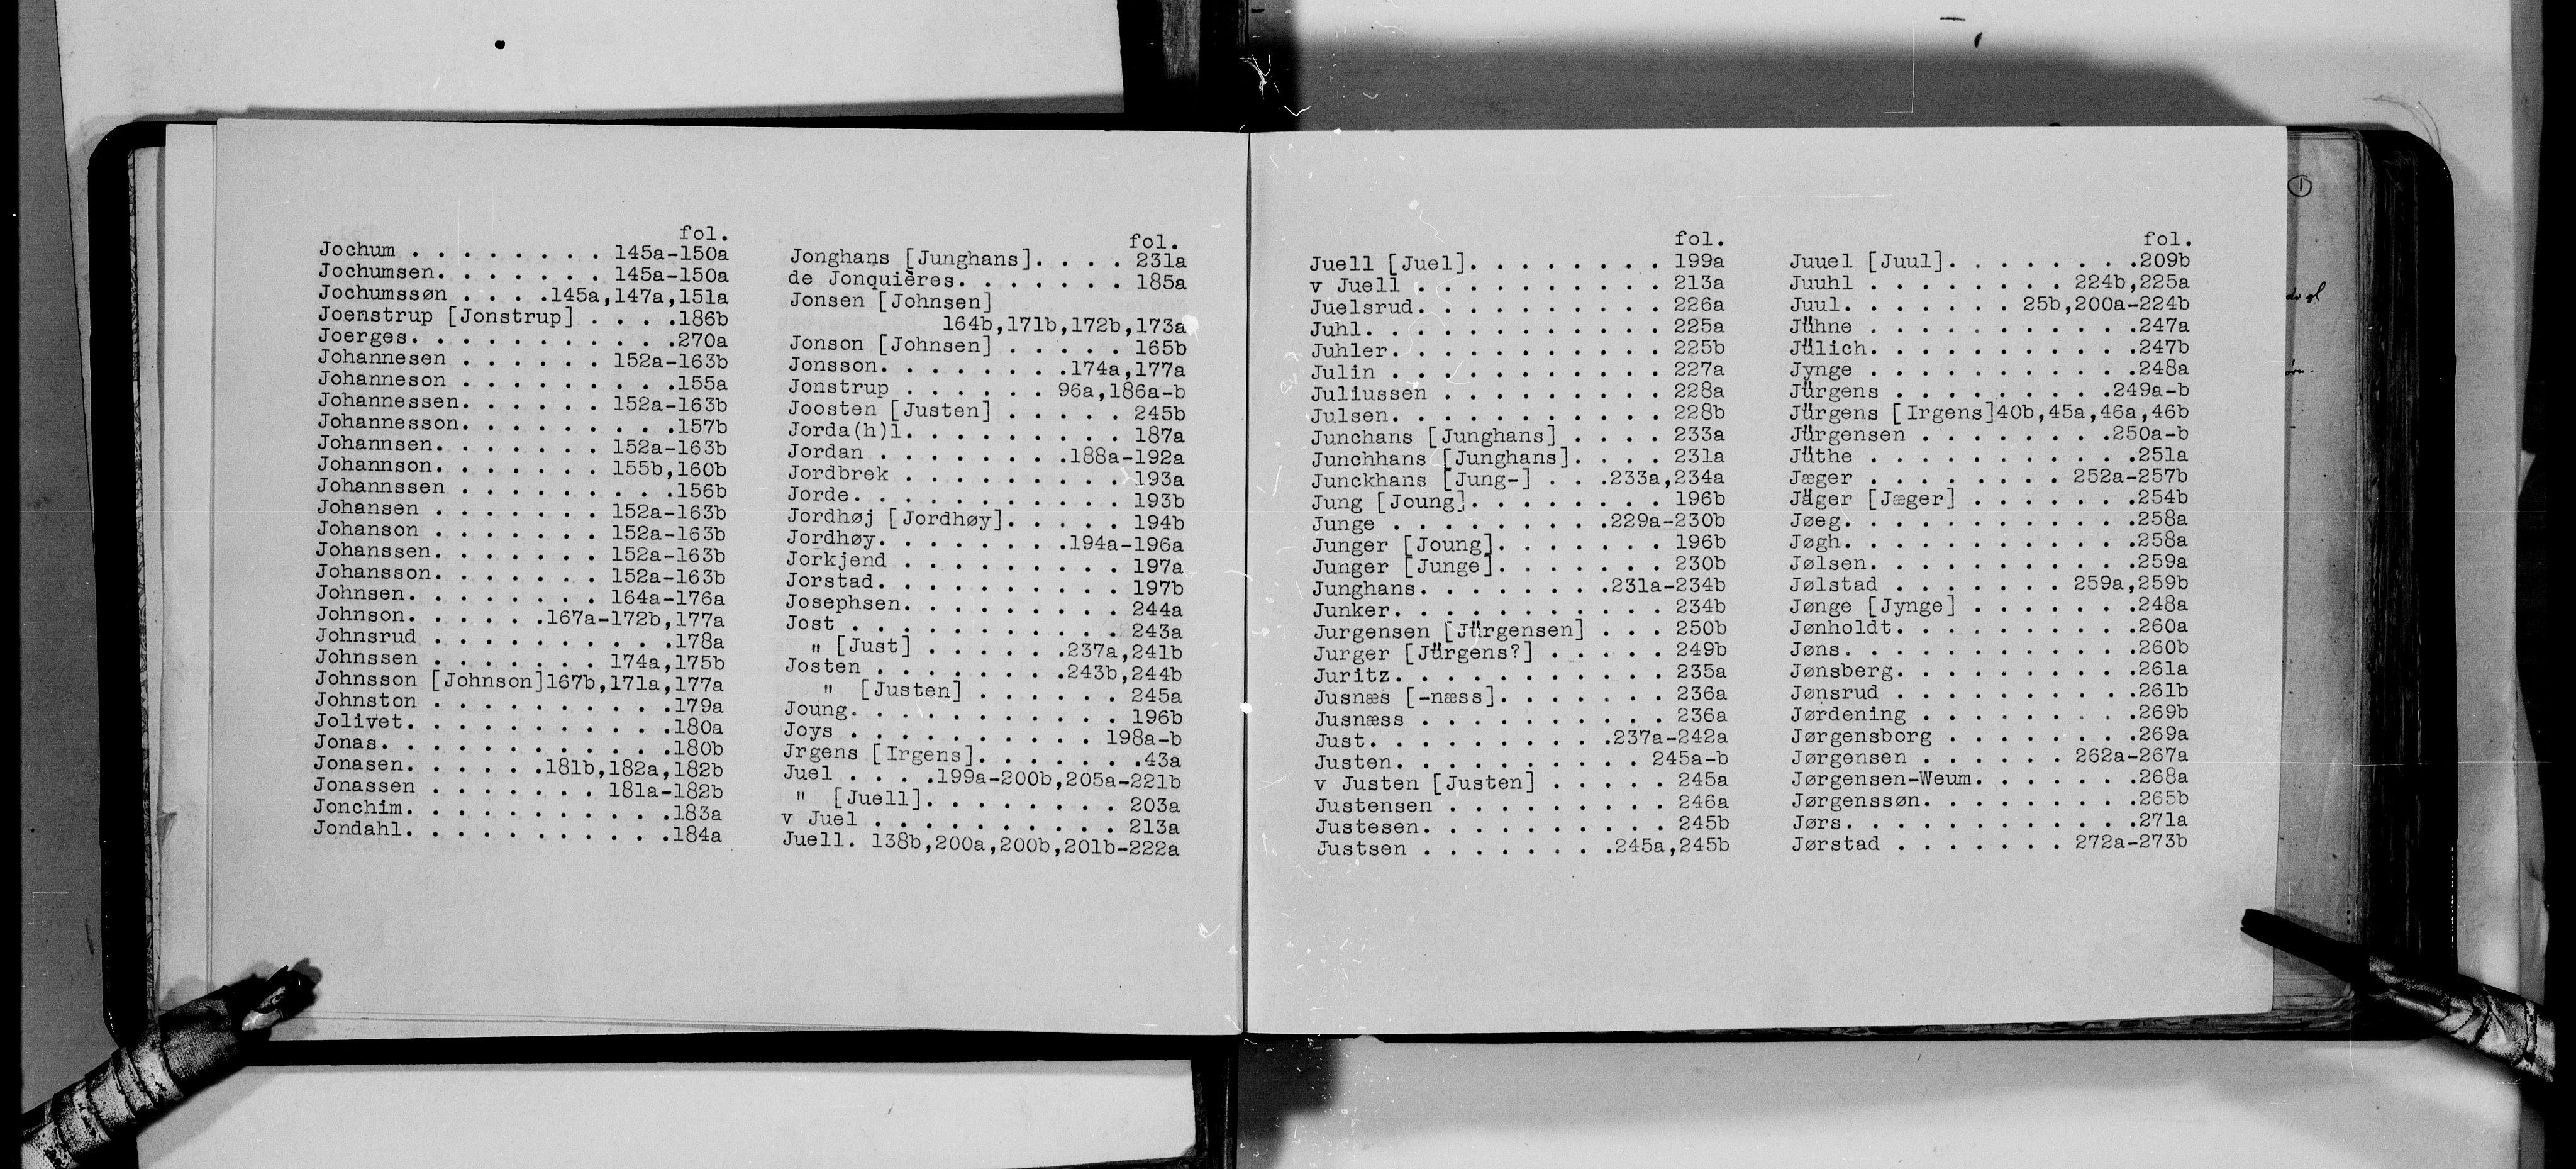 fol.
Jochum . . . . . . . . 145a-150a
Jochumsen. . . . . . . 145a-150a
Jochumssøn . . . .145a,147a,151a
Joenstrup [Jonstrup] . . . .186b
Joerges. . . . . . . . . . .270a
Johannesen . . . . . . 152a-163b
Johanneson . . . . . . . . .155a
Johannessen. . . . . . 152a-163b
Johannesson. . . . . . . . .157b
Johannsen. . . . . . . 152a-163b
Johannson. . . . . . . 155b,160b
Johannssen . . . . . . . . .156b
Johansen . . . . . . . 152a-163b
Johanson . . . . . . . 152a-163b
Johanssen. . . . . . . 152a-163b
Johansson. . . . . . . 152a-163b
Johnsen. . . . . . . . 164a-176a
Johnson. . . . . .167a-172b,177a
Johnsrud . . . . . . . . . .178a
Johnssen . . . . . . . 174a,175b
Johnsson [Johnson]167b,171a,177a
Johnston . . . . . . . . . .179a
Jolivet. . . . . . . . . . .180a
Jonas. . . . . . . . . . . .180b
Jonasen. . . . . .181b,182a,182b
Jonassen . . . . . . . 181a-182b
Jonchim. . . . . . . . . . .183a
Jondahl. . . . . . . . . . .184a
fol.
Jonghans [Junghans]. . . . 231a
de Jonquières. . . . . . . 185a
Jonsen [Johnsen]
164b,171b,172b,173a
Jonson [Johnsen] . . . . . 165b
Jonsson. . . . . . . .174a,177a
Jonstrup . . . . . . 96a,186a-b
Joosten [Justen] . . . . . 245b
Jorda(h)l. . . . . . . . . 187a
Jordan . . . . . . . .188a-192a
Jordbrek . . . . . . . . . 193a
Jorde. . . . . . . . . . . 193b
Jordhøj [Jordhøy]. . . . . 194b
Jordhøy. . . . . . . .194a-196a
Jorkjend . . . . . . . . . 197a
Jorstad. . . . . . . . . . 197b
Josephsen. . . . . . . . . 244a
Jost . . . . . . . . . . . 243a
" [Just] . . . . . .237a,241b
Josten . . . . . . . .243b,244b
" [Justen] . . . . . . 245a
Joung. . . . . . . . . . . 196b
Joys . . . . . . . . . . 198a-b
Jrgens [Irgens]. . . . . . .43a
Juel . . . .199a-200b,205a-221b
" [Juell]. . . . . . . . 203a
v Juel . . . . . . . . . . 213a
Juell. 138b,200a,200b,201b-222a
fol.
Juell [Juel]. . . . . . . . 199a
v Juell . . . . . . . . . . 213a
Juelsrud. . . . . . . . . . 226a
Juhl. . . . . . . . . . . . 225a
Juhler. . . . . . . . . . . 225b
Julin . . . . . . . . . . . 227a
Juliussen . . . . . . . . . 228a
Julsen. . . . . . . . . . . 228b
Junchans [Junghans] . . . . 233a
Junchhans [Junghans]. . . . 231a
Junckhans [Jung-] . . .233a,234a
Jung [Joung]. . . . . . . . 196b
Junge . . . . . . . . .229a-230b
Junger [Joung]. . . . . . . 196b
Junger [Junge]. . . . . . . 230b
Junghans. . . . . . . .231a-234b
Junker. . . . . . . . . . . 234b
Jurgensen [Jürgensen] . . . 250b
Jurger [Jürgens?] . . . . . 249b
Juritz. . . . . . . . . . . 235a
Jusnæs [-næss]. . . . . . . 236a
Jusnæss . . . . . . . . . . 236a
Just. . . . . . . . . .237a-242a
Justen. . . . . . . . . . 245a-b
v Justen [Justen] . . . . . 245a
Justensen . . . . . . . . . 246a
Justesen. . . . . . . . . . 245b
Justsen . . . . . . . .245a,245b
fol.
Juuel [Juul]. . . . . . . .209b
Juuhl . . . . . . . . 224b,225a
Juul. . . . . . . 25b,200a-224b
Jühne . . . . . . . . . . .247a
Jülich. . . . . . . . . . .247b
Jynge . . . . . . . . . . .248a
Jürgens . . . . . . . . .249a-b
Jürgens [Irgens]40b,45a,46a,46b
Jürgensen . . . . . . . .250a-b
Jüthe . . . . . . . . . . .251a
Jæger . . . . . . . . 252a-257b
Jäger [Jæger] . . . . . . .254b
Jøeg. . . . . . . . . . . .258a
Jøgh. . . . . . . . . . . .258a
Jølsen. . . . . . . . . . .259a
Jølstad . . . . . . . 259a,259b
Jønge [Jynge] . . . . . . .248a
Jønholdt. . . . . . . . . .260a
Jøns. . . . . . . . . . . .260b
Jønsberg. . . . . . . . . .261a
Jønsrud . . . . . . . . . .261b
Jørdening . . . . . . . . .269b
Jørgensborg . . . . . . . .269a
Jørgensen . . . . . . 262a-267a
Jørgensen-Weum. . . . . . .268a
Jørgenssøn. . . . . . . . .265b
Jørs. . . . . . . . . . . .271a
Jørstad . . . . . . . 272a-273b
1